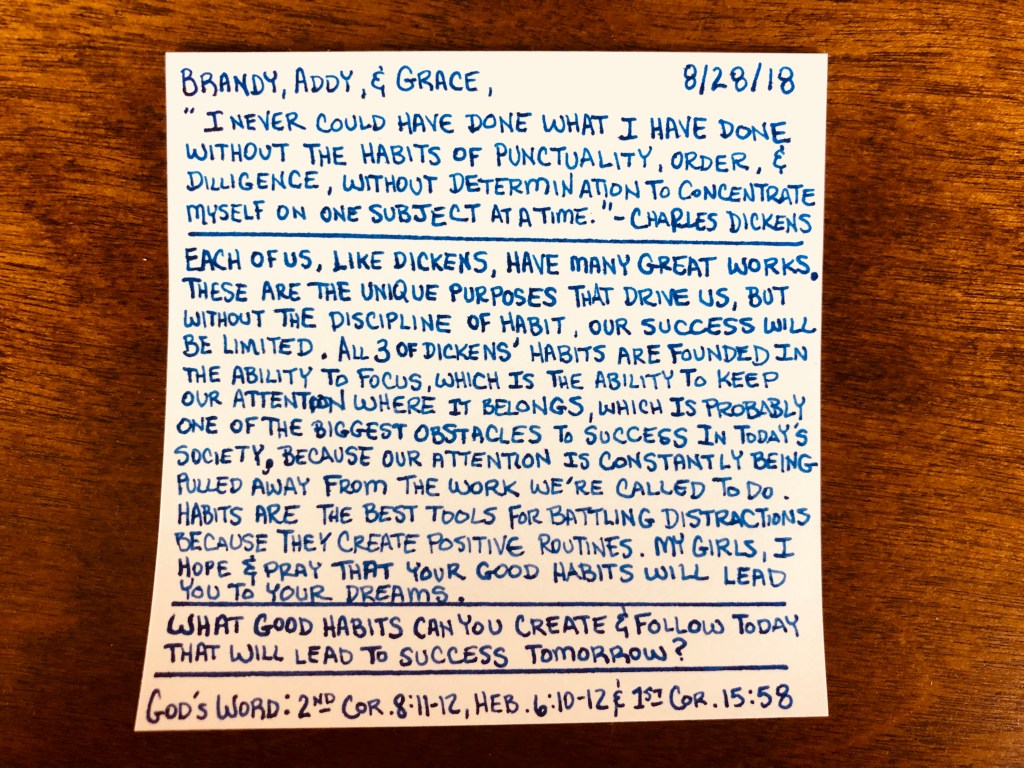 BRANDY, ADDY, & GRACE, 8/28/18
"I NEVER COULD HAVE DONE WHAT I HAVE DONE
WITHOUT THE HABITS OF PUNCTUALITY, ORDER, &
DILLIGENCE, WITHOUT DETERMINATION TO CONCENTRATE
MYSELF ON ONE SUBJECT AT A TIME." - CHARLES DICKENS
EACH OF US, LIKE DICKENS, HAVE MANY GREAT WORKS.
THESE ARE THE UNIQUE PURPOSES THAT DRIVE US, BUT
WITHOUT THE DISCIPLINE OF HABIT, OUR SUCCESS WILL
BE LIMITED. ALL 3 OF DICKENS' HABITS ARE FOUNDED IN
THE ABILITY TO FOCUS, WHICH IS THE ABILITY TO KEEP
OUR ATTENTION WHERE IT BELONGS, WHICH IS PROBABLY
ONE OF THE BIGGEST OBSTACLES TO SUCCESS IN TODAY'S
SOCIETY, BECAUSE OUR ATTENTION IS CONSTANTLY BEING
PULLED AWAY FROM THE WORK WE'RE CALLED TO DO.
HABITS ARE THE BEST TOOLS FOR BATTLING DISTRACTIONS
BECAUSE THEY CREATE POSITIVE ROUTINES. MY GIRLS, I
HOPE & PRAY THAT YOUR GOOD HABITS WILL LEAD
YOU TO YOUR DREAMS.
WHAT GOOD HABITS CAN YOU CREATE & FOLLOW TODAY
THAT WILL LEAD TO SUCCESS TOMORROW?
GOD'S WORD: 2ND COR. 8:11-12, HEB. 6:10-12 & 1ST COR. 15:58